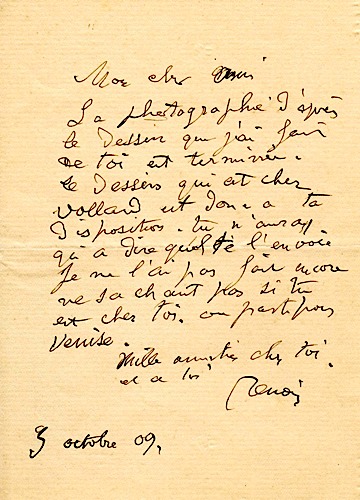 Mon cher ami
La photographie d'après
le dessin que j'ai fait
de toi est terminée.
le dessin qui est chez
Vollard est donc a ta
disposition. tu n'auras
qu'a dire quel te l'envoie
Je ne l'ai pas fait encore
ne sachant pas si tu
est chez toi. ou parti pour
Venise.
Mille amitiés chez toi.
et a toi
Renoir
3 octobre 09.